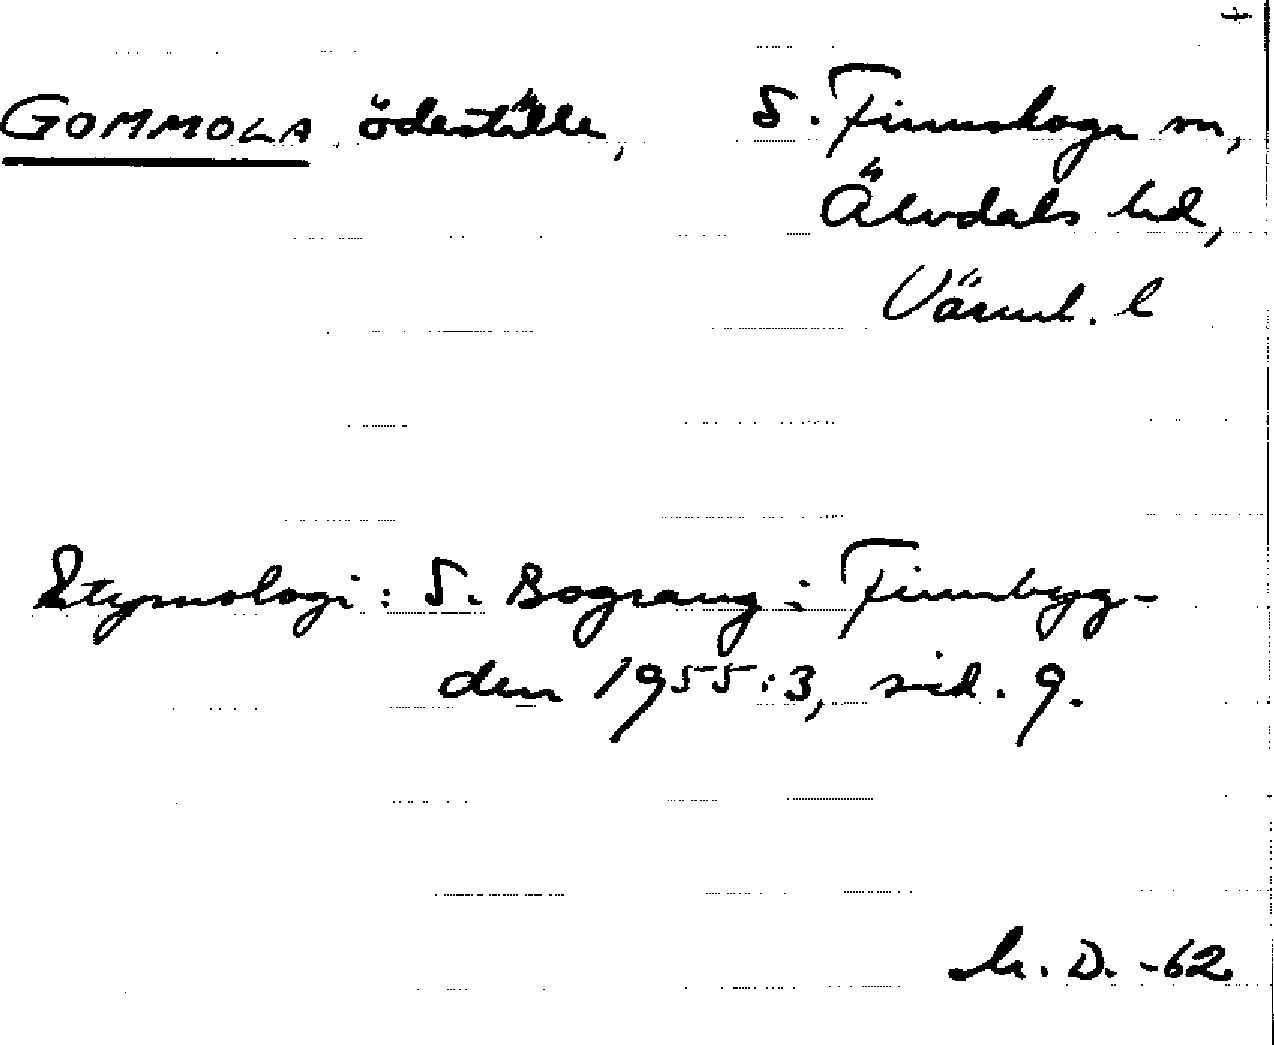 GOMMOLA ödeställe, S. Finnskoga sn,
Älvdals hd,
Värml. l
Etymologi: S. Bograng i Finnbyg-
den 1955:3, sid. 9.
D. -62